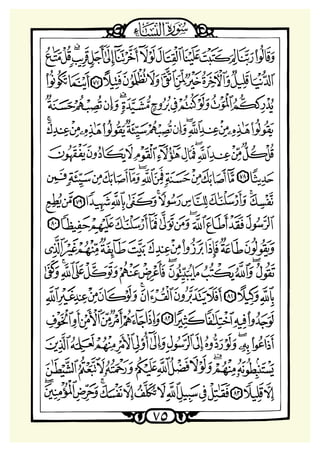 سُورَةُ النِّسَاءِ
وَقَالُوا رَبَّنَا لِمَ كَتَبْتَ عَلَيْنَا الْقِتَالَ لَوْلَا أَخَّرْتَنَا إِلَىٰ أَجَلٍ قَرِيبٍ قُلْ مَتَاعُ
الدُّنْيَا قَلِيلٌ وَالْآخِرَةُ خَيْرٌ لِمَنِ اتَّقَىٰ وَلَا تُظْلَمُونَ فَتِيلًا ٧٧ أَيْنَمَا تَكُونُوا
يُدْرِكْكُمُ الْمَوْتُ وَلَوْ كُنْتُمْ فِي بُرُوجٍ مُشَيَّدَةٍ وَإِنْ تُصِبْهُمْ حَسَنَةٌ
يَقُولُوا هَٰذِهِ مِنْ عِنْدِ اللَّهِ وَإِنْ تُصِبْهُمْ سَيِّئَةٌ يَقُولُوا هَٰذِهِ مِنْ عِنْدِكَ
قُلْ كُلٌّ مِنْ عِنْدِ اللَّهِ فَمَالِ هَٰؤُلَاءِ الْقَوْمِ لَا يَكَادُونَ يَفْقَهُونَ
حَدِيثًا ٧٨ مَا أَصَابَكَ مِنْ حَسَنَةٍ فَمِنَ اللَّهِ وَمَا أَصَابَكَ مِنْ سَيِّئَةٍ فَمِنْ
نَفْسِكَ وَأَرْسَلْنَاكَ لِلنَّاسِ رَسُولًا وَكَفَىٰ بِاللَّهِ شَهِيدًا ٧٩ مَنْ يُطِعِ
الرَّسُولَ فَقَدْ أَطَاعَ اللَّهَ وَمَنْ تَوَلَّىٰ فَمَا أَرْسَلْنَاكَ عَلَيْهِمْ حَفِيظًا ٨٠
وَيَقُولُونَ طَاعَةٌ فَإِذَا بَرَزُوا مِنْ عِنْدِكَ بَيَّتَ طَائِفَةٌ مِنْهُمْ غَيْرَ الَّذِي
تَقُولُ وَاللَّهُ يَكْتُبُ مَا يُبَيِّتُونَ فَأَعْرِضْ عَنْهُمْ وَتَوَكَّلْ عَلَى اللَّهِ وَكَفَىٰ
بِاللَّهِ وَكِيلًا ٨١ أَفَلَا يَتَدَبَّرُونَ الْقُرْآنَ وَلَوْ كَانَ مِنْ عِنْدِ غَيْرِ اللَّهِ
لَوَجَدُوا فِيهِ اخْتِلَافًا كَثِيرًا ٨٢ وَإِذَا جَاءَهُمْ أَمْرٌ مِنَ الْأَمْنِ أَوِ الْخَوْفِ
أَذَاعُوا بِهِ وَلَوْ رَدُّوهُ إِلَى الرَّسُولِ وَإِلَىٰ أُولِي الْأَمْرِ مِنْهُمْ لَعَلِمَهُ الَّذِينَ
يَسْتَنْبِطُونَهُ مِنْهُمْ وَلَوْلَا فَضْلُ اللَّهِ عَلَيْكُمْ وَرَحْمَتُهُ لَاتَّبَعْتُمُ الشَّيْطَانَ
إِلَّا قَلِيلًا ٨٣ فَقَاتِلْ فِي سَبِيلِ اللَّهِ لَا تُكَلَّفُ إِلَّا نَفْسَكَ وَحَرِّضِ الْمُؤْمِنِينَ
٧٥